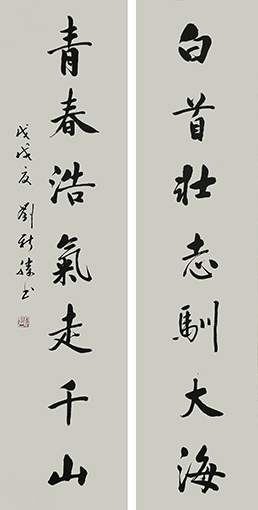 白首壯志馴大海
青春浩氣走千山
戊戌夏劉新德书